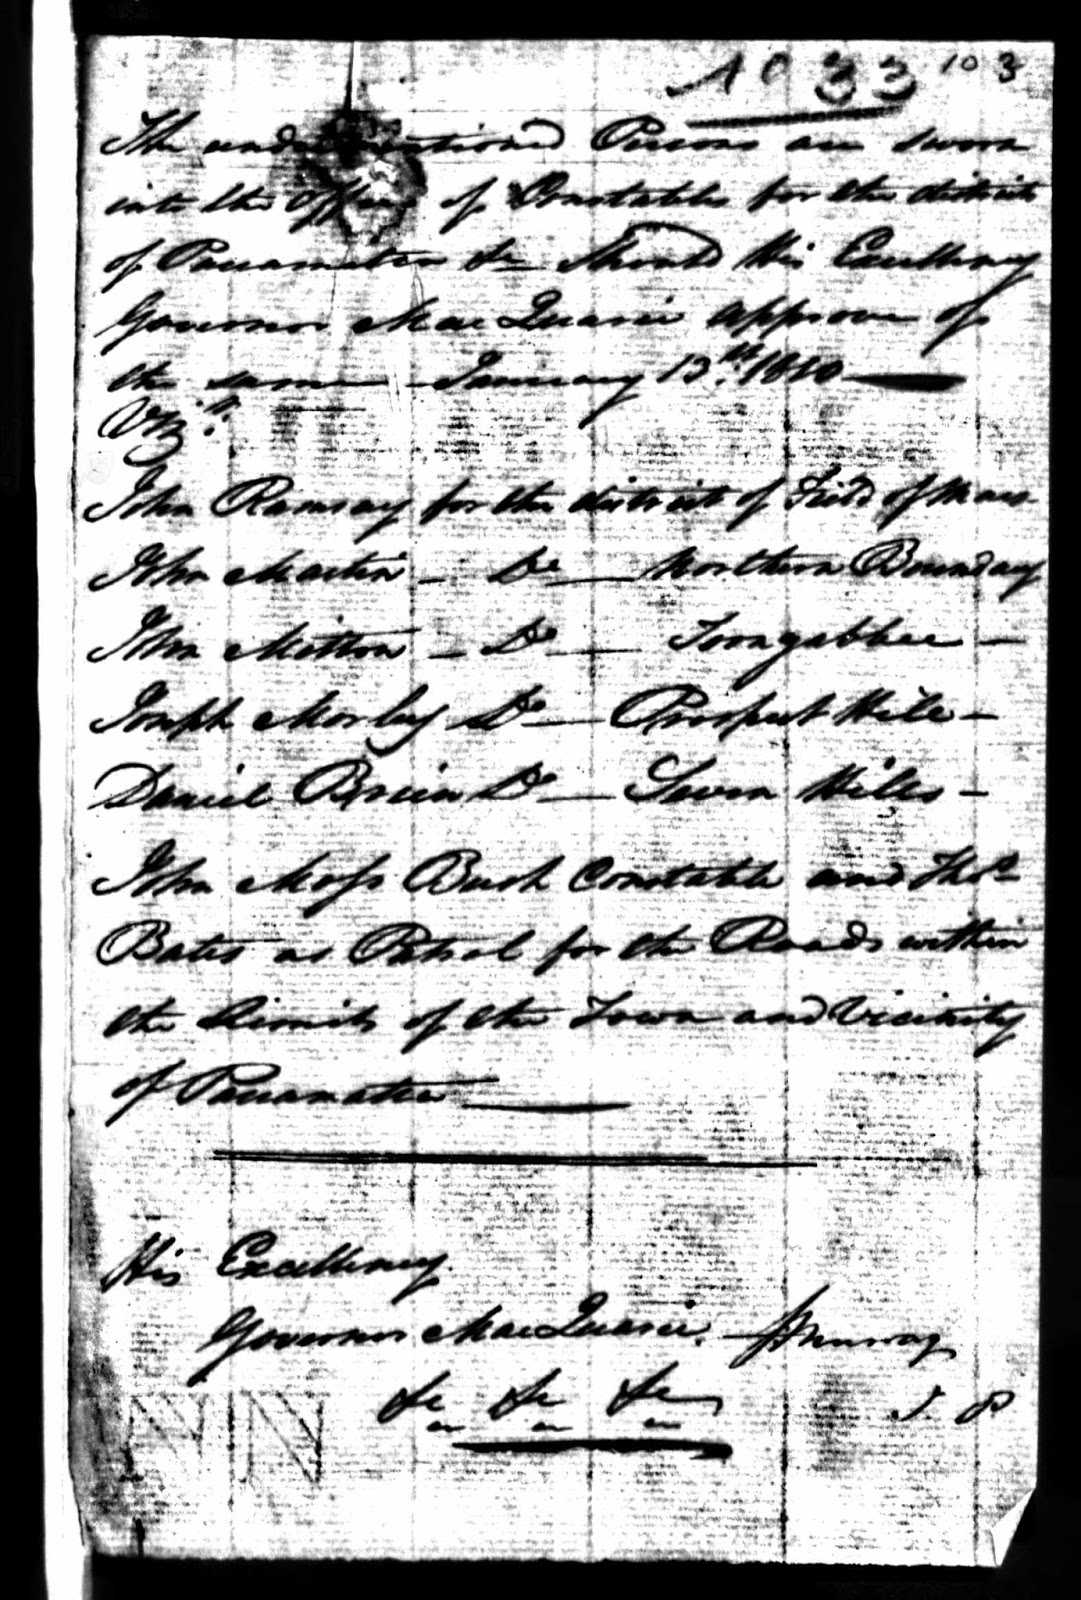 No 33 103
The undermentioned Persons are sworn
into the Office of Constables for the districts
of Parramatta &c Should His Excellency
Governor MacQuarie approve of
the same January 13th 1810
Vizt
John Ramsay for the district of Field of Mars
John Martin - Do - Northern Boundary
John Mitton - Do - Toongabbee -
Joseph Morley Do - Prospect Hill -
Daniel Brien Do - Seven Hills -
John Moss Bush Constable and Thos
Bates as Patrol for the Roads within
the Limits of the Town and Vicinity
of Parramatta
His Excellency
Governor MacQuarie
&c &c &c J. P.